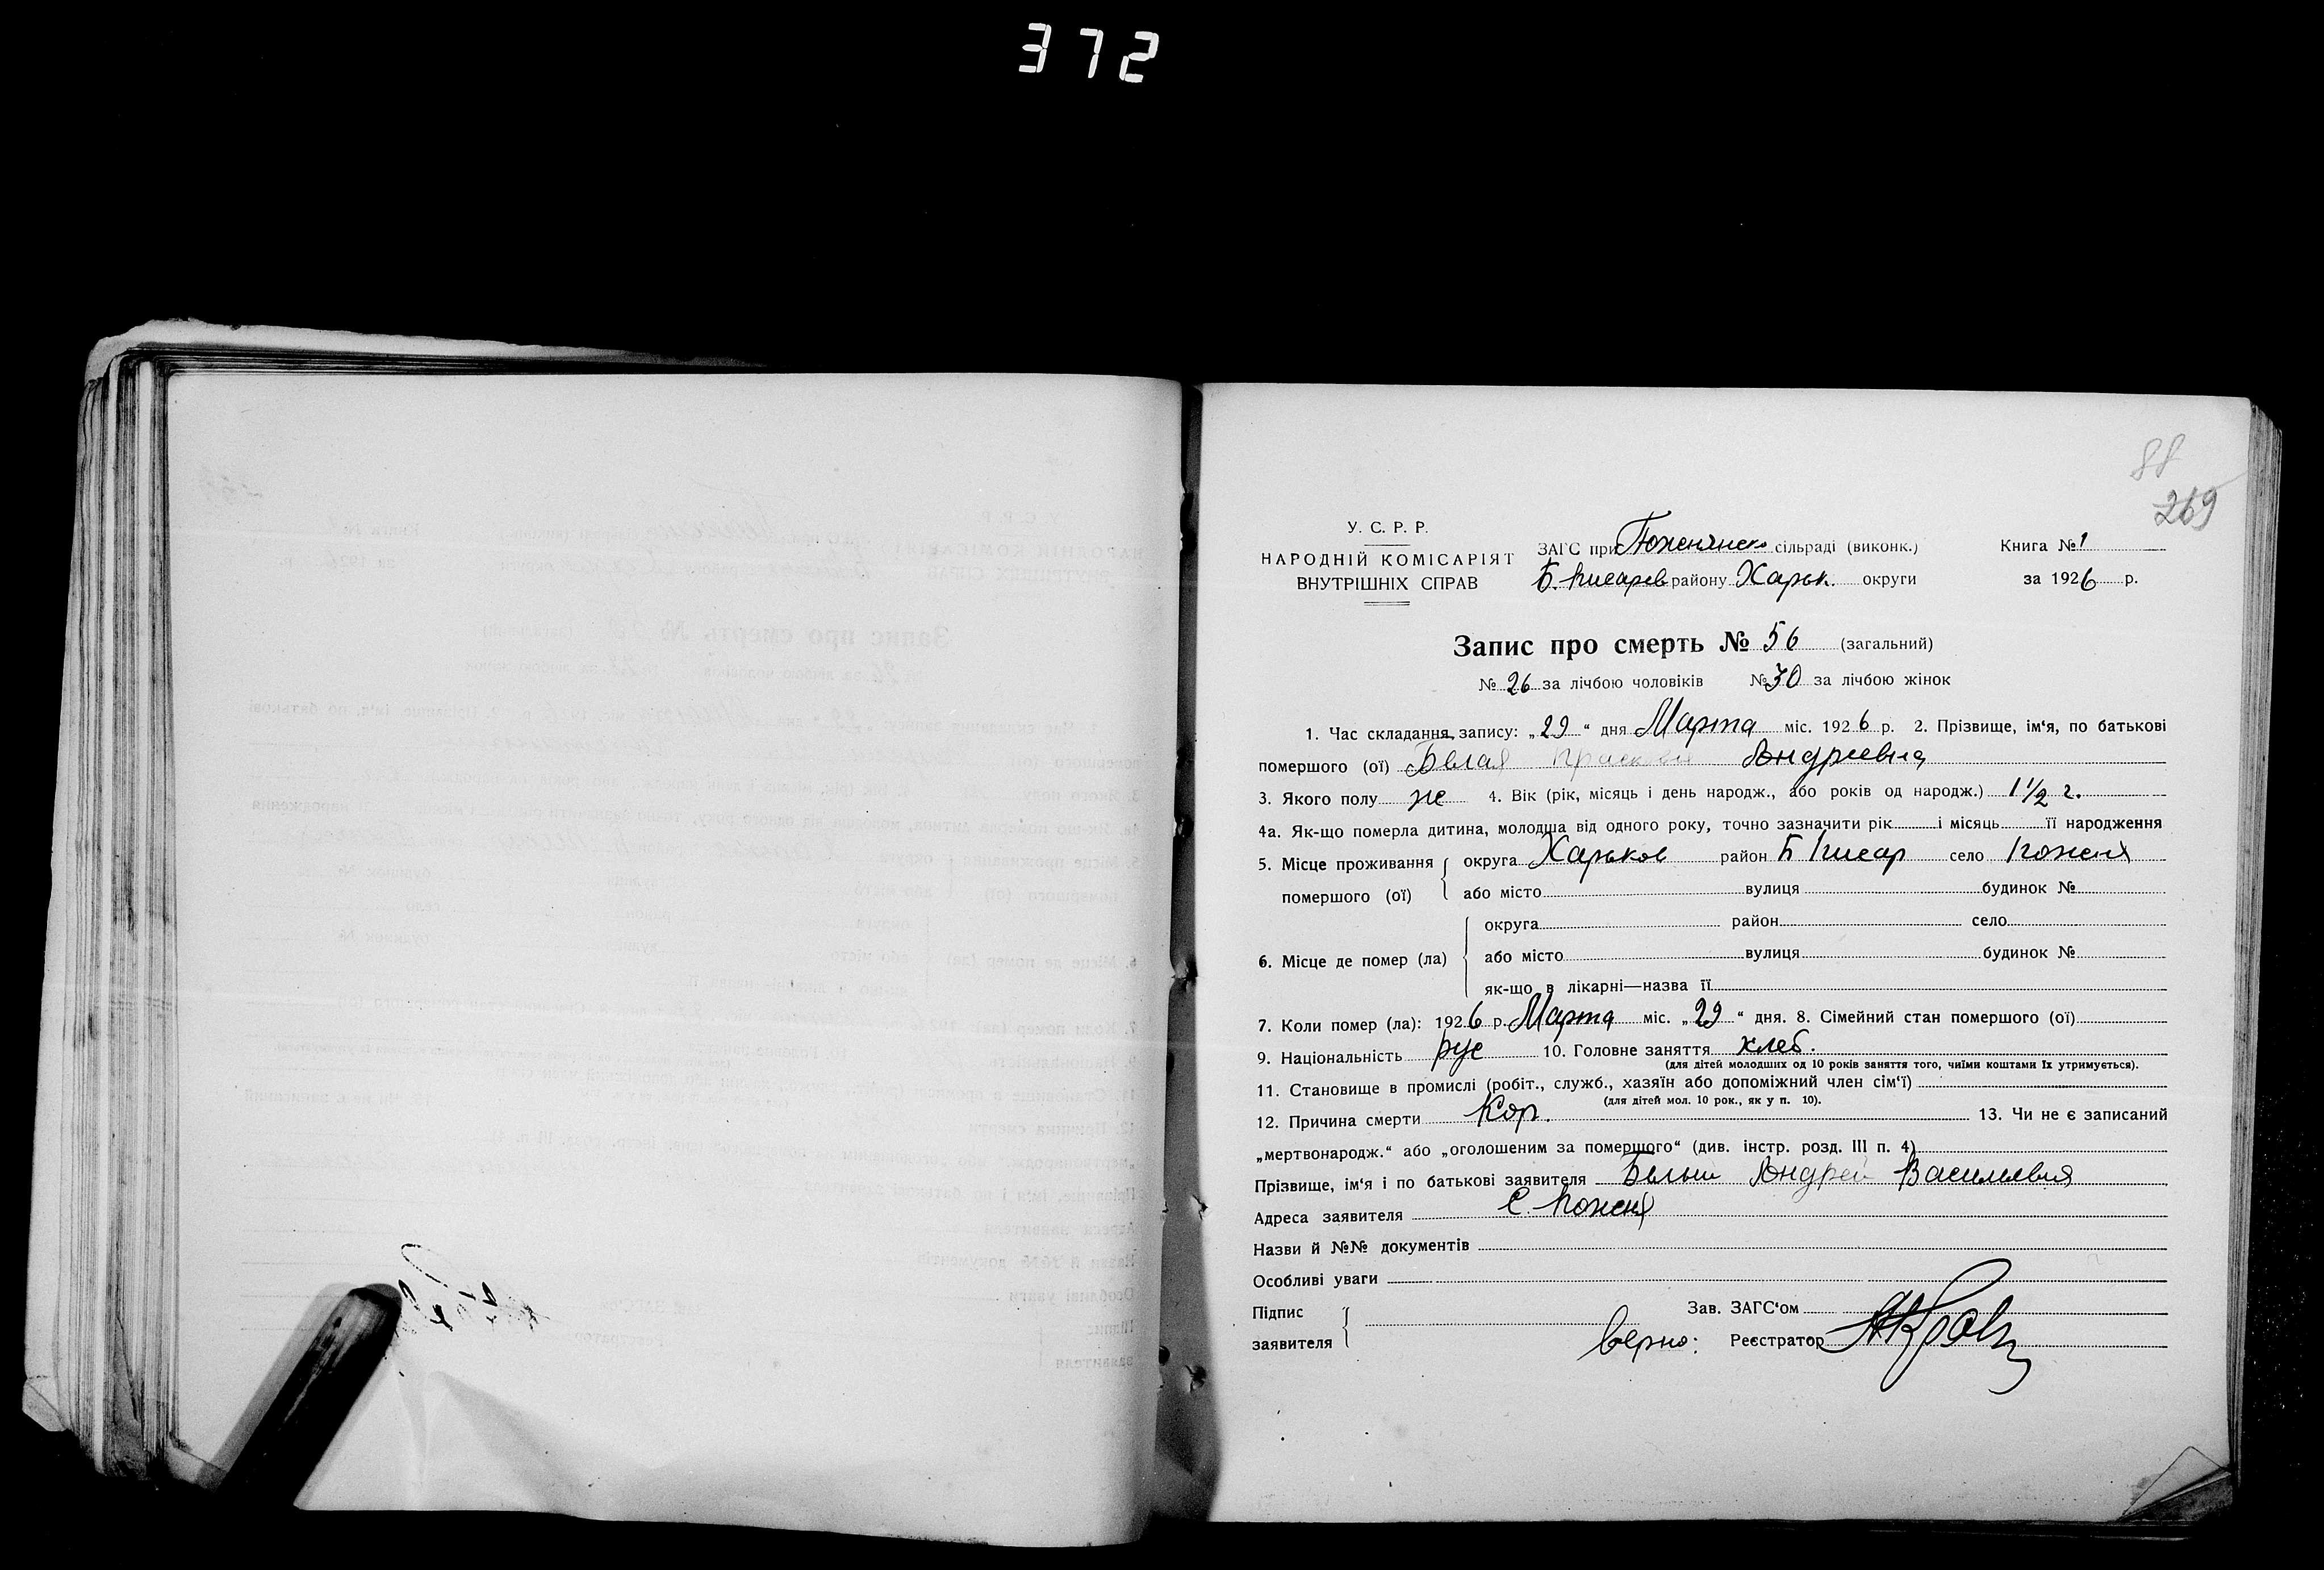 372
88
269
У. С. Р. Р.
НАРОДНІЙ КОМІСАРІЯТ
ВНУТРІШНІХ СПРАВ
ЗАГС при Поженянск сільраді (виконк.)
Б. Писарев району Харьк. округи
Книга № 1
за 1926 р.
Запис про смерть № 56 (загальний)
№ 26 за лічбою чоловіків № 30 за лічбою жінок
1. Час складання запису: „29“ дня Марта міс. 1926 р. 2. Прізвище, ім‘я, по батькові
помершого (ої) Белая Прасковя Андреевна
3. Якого полу ж 4. Вік (рік, місяць і день народж., або років од народж.) 1 1/2 г.
4а. Як-що померла дитина, молодша від одного року, точно зазначити рік і місяць її народження
5. Місце проживання помершого (ої) округа Харьков район Б Писар село Поженя
або місто вулиця будинок №
6. Місце де помер (ла) округа район село
або місто вулиця будинок №
як-що в лікарні—назва її
7. Коли помер (ла): 1926 р. Марта міс. „29“ дня. 8. Сімейний стан помершого (ої)
9. Національність рус 10. Головне заняття хлеб.
(для дітей молодших од 10 років заняття того, чиїми коштами їх утримується).
11. Становище в промислі (робіт., служб., хазяїн або допоміжний член сім‘ї)
(для дітей мол. 10 рок., як у п. 10).
12. Причина смерти Кор. 13. Чи не є записаний
„мертвонародж.“ або „оголошеним за помершого“ (див. інстр. розд. III п. 4)
Прізвище, ім‘я і по батькові заявителя Белый Андрей Васильевич
Адреса заявителя С. Поженя
Назви й №№ документів
Особливі уваги
Підпис заявителя
Зав. ЗАГС‘ом
верно: Реєстратор